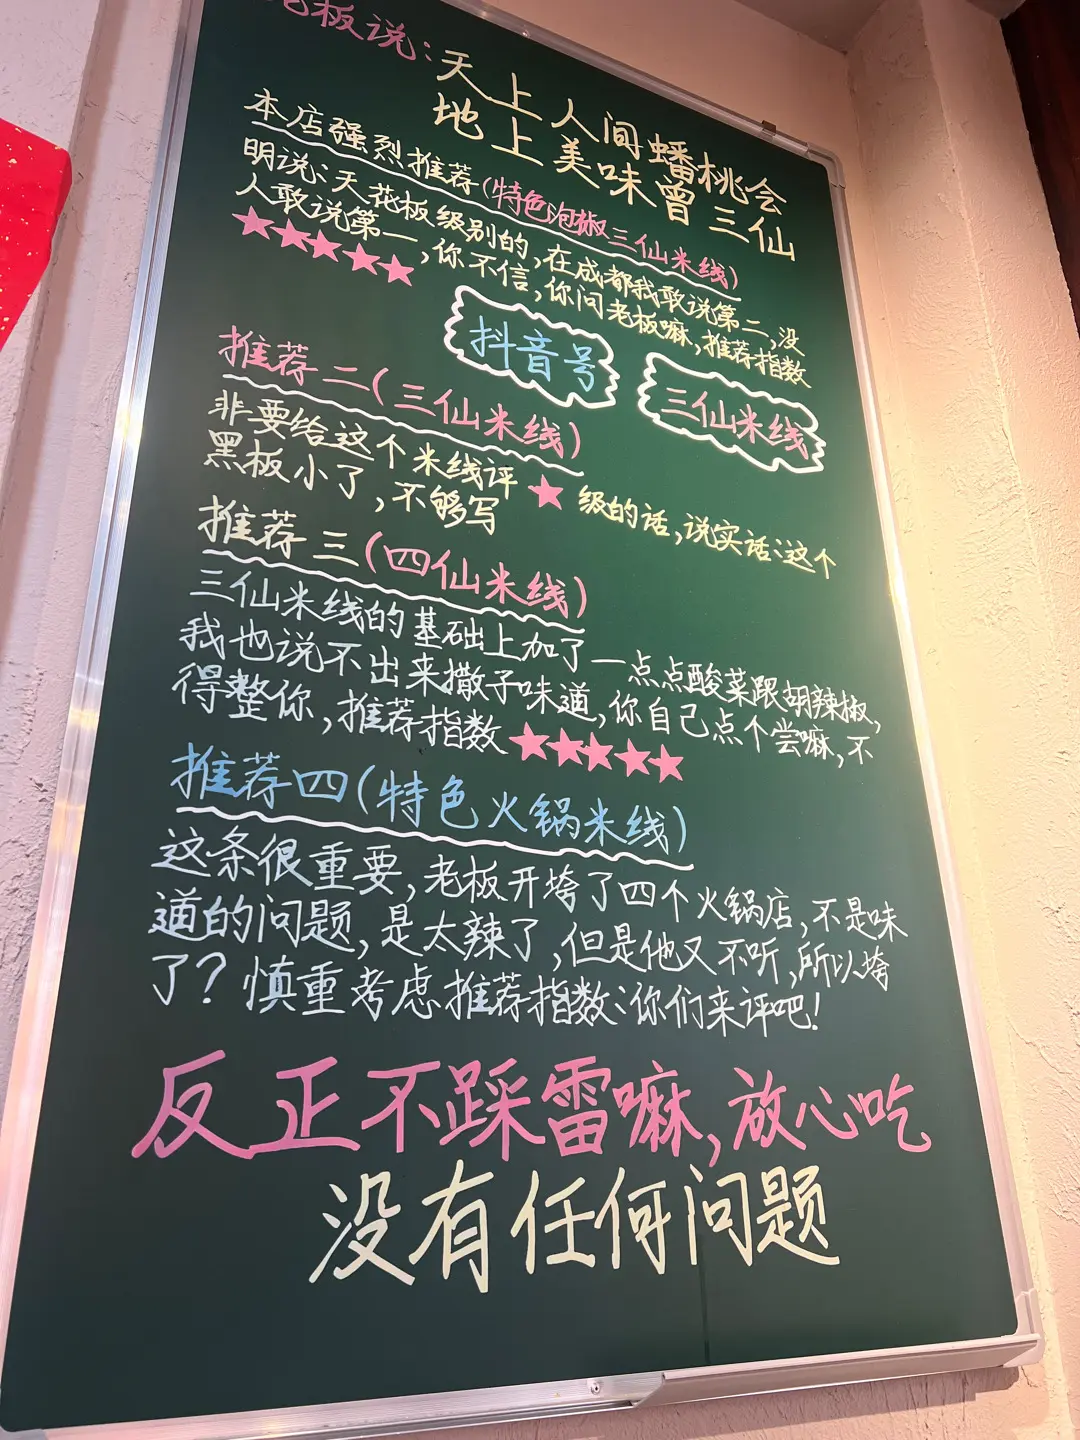 老板说：天上人间蟠桃会
地上美味曾三仙
本店强烈推荐（特色泡椒三仙米线）
明说：天花板级别的，在成都我敢说第二，没
人敢说第一，你不信，你问老板嘛，推荐指数
★★★★★
抖音号
三仙米线
推荐二（三仙米线）
非要给这个米线评★级的话，说实话：这个
黑板小了，不够写
推荐三（四仙米线）
三仙米线的基础上加了一点点酸菜跟胡辣椒，
我也说不出来撒子味道，你自己点个尝嘛，不
得整你，推荐指数★★★★★
推荐四（特色火锅米线）
这条很重要，老板开垮了四个火锅店，不是味
道的问题，是太辣了，但是他又不听，所以垮
了？慎重考虑推荐指数：你们来评吧！
反正不踩雷嘛，放心吃
没有任何问题